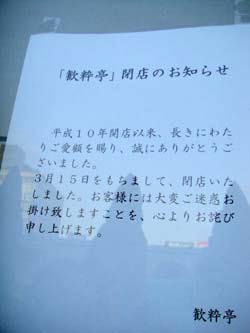 「歓粋亭」閉店のお知らせ
平成10年開店以来、長きにわた
りご愛顧を賜り、誠にありがとうご
ざいました。
3月15日をもちまして、閉店いた
しました。お客様には大変ご迷惑お
掛け致しますことを、心よりお詫び
申し上げます。
歓粋亭